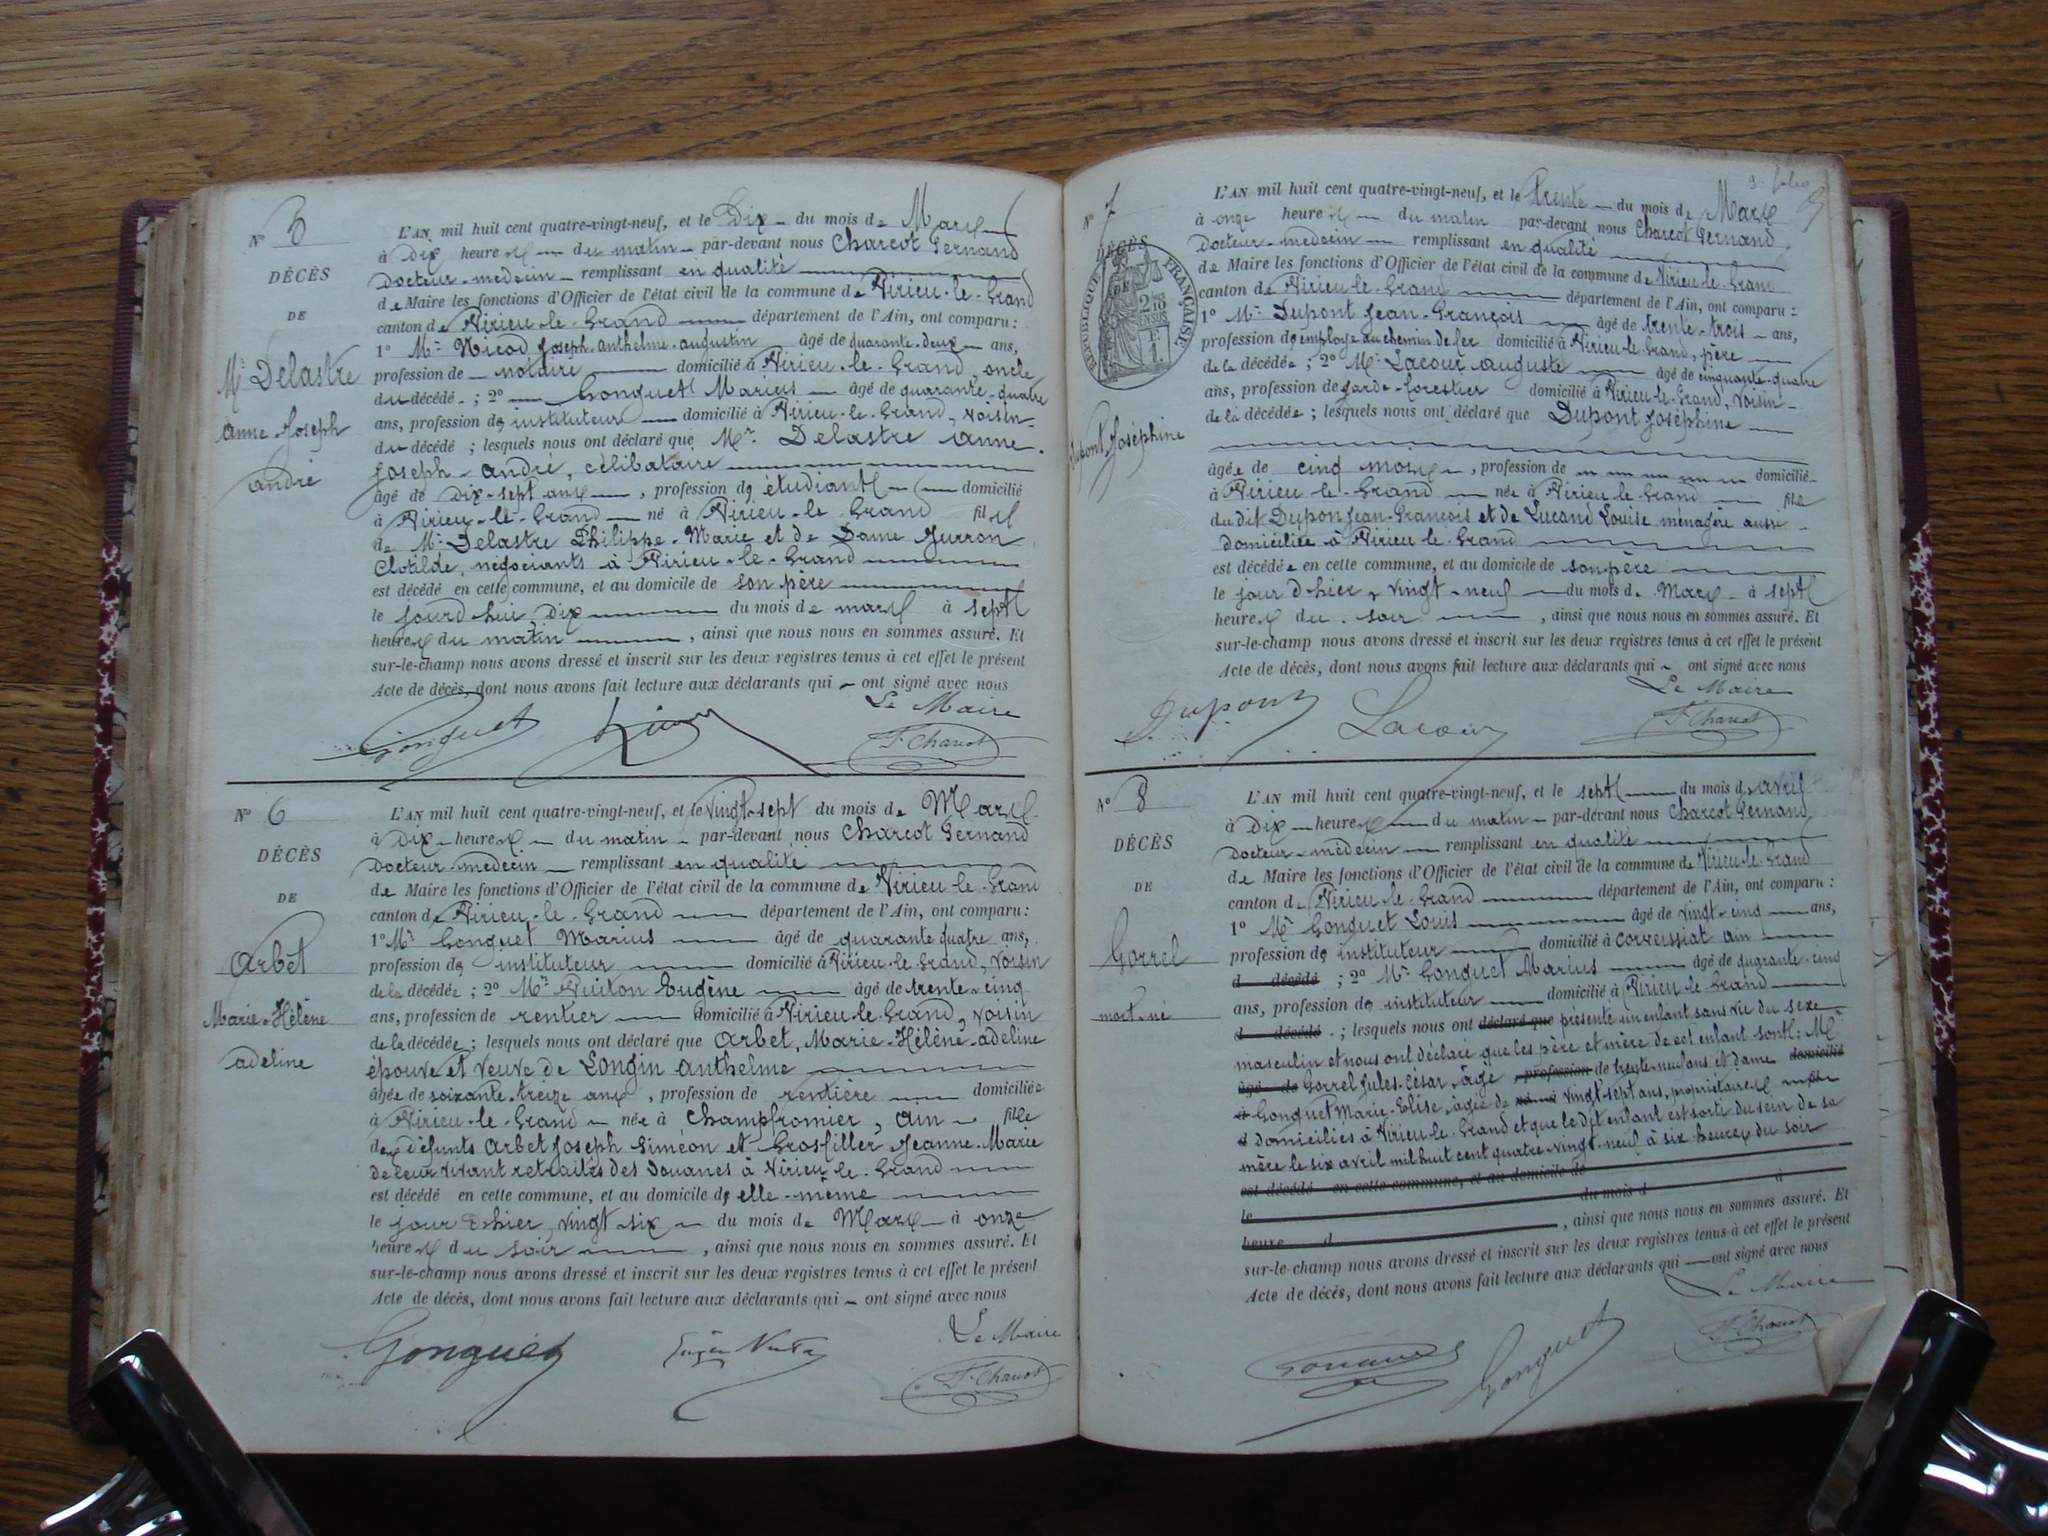 N° 5
DÉCÈS
DE
Mr Delastre
Anne-Joseph
André
L'AN mil huit cent quatre-vingt-neuf, et le Dix du mois de Mars
à Dix heures du matin par-devant nous Charcot Fernand
Docteur-médecin remplissant en qualité
de Maire les fonctions d'Officier de l'état civil de la commune de Virieu-le-Grand
canton de Virieu-le-Grand département de l'Ain, ont comparu :
1° Mr Nicod Joseph-anthelme-augustin âgé de quarante-deux ans,
profession de notaire domicilié à Virieu-le-Grand, oncle
du décédé ; 2° Gonguet Marius âgé de quarante-quatre
ans, profession de instituteur domicilié à Virieu-le-Grand, voisin
du décédé ; lesquels nous ont déclaré que Mr Delastre Anne-
Joseph-André, célibataire
âgé de dix-sept ans, profession de étudiant domicilié
à Virieu-le-Grand né à Virieu-le-Grand fils
de Mr Delastre Philippe-Marie et de Dame
Clotilde, négociants à Virieu-le-Grand
est décédé en cette commune, et au domicile de son père
le jourd'hui dix du mois de mars à sept
heures du matin, ainsi que nous nous en sommes assuré. Et
sur-le-champ nous avons dressé et inscrit sur les deux registres tenus à cet effet le présent
Acte de décès, dont nous avons fait lecture aux déclarants qui ont signé avec nous
Le Maire
Gonguet F. Charcot
N° 6
DÉCÈS
DE
Arbet
Marie-Hélène
adeline
L'AN mil huit cent quatre-vingt-neuf, et le vingt-sept du mois de Mars
à Dix heures du matin par-devant nous Charcot Fernand
Docteur-médecin remplissant en qualité
de Maire les fonctions d'Officier de l'état civil de la commune de Virieu-le-Grand
canton de Virieu-le-Grand département de l'Ain, ont comparu :
1° Mr Gonguet Marius âgé de quarante quatre ans,
profession de instituteur domicilié à Virieu-le-Grand, voisin
de la décédée ; 2° Mr Eugène âgé de trente-cinq
ans, profession de rentier domicilié à Virieu-le-Grand, voisin
de la décédée ; lesquels nous ont déclaré que Arbet, Marie-Hélène-adeline
épouve et veuve de Longin anthelme
âgée de soixante-treize ans, profession de rentière domiciliée
à Virieu-le-Grand née à Champfromier, Ain fille
des défunts Arbet Joseph Siméon et Grosfiller Jeanne-Marie
de leur vivant retraités des Douanes à Virieu-le-Grand
est décédé en cette commune, et au domicile de elle-même
le jour d'hier, vingt-six du mois de Mars à onze
heures du soir, ainsi que nous nous en sommes assuré. Et
sur-le-champ nous avons dressé et inscrit sur les deux registres tenus à cet effet le présent
Acte de décès, dont nous avons fait lecture aux déclarants qui ont signé avec nous
Le Maire
Gonguet F. Charcot
N° 7
DÉCÈS
DE
RÉPUBLIQUE FRANÇAISE.
Dupont Joséphine
L'AN mil huit cent quatre-vingt-neuf, et le trente du mois de Mars
à onze heures du matin par-devant nous Charcot Fernand
Docteur-médecin remplissant en qualité
de Maire les fonctions d'Officier de l'état civil de la commune de Virieu-le-Grand
canton de Virieu-le-Grand département de l'Ain, ont comparu :
1° Mr Dupont Jean-François âgé de trente-trois ans,
profession de employé au chemin de fer domicilié à Virieu-le-Grand, père
de la décédée ; 2° Mr Lacour auguste âgé de cinquante-quatre
ans, profession de garde-forestier domicilié à Virieu-le-Grand, voisin
de la décédée ; lesquels nous ont déclaré que Dupont Joséphine
âgée de cinq mois, profession de domiciliée
à Virieu-le-Grand née à Virieu-le-Grand fille
du dit Dupon Jean-François et de Lucand Louise ménagère aussi
domiciliée à Virieu-le-Grand
est décédée en cette commune, et au domicile de son père
le jour d'hier, vingt-neuf du mois de Mars à sept
heures du soir, ainsi que nous nous en sommes assuré. Et
sur-le-champ nous avons dressé et inscrit sur les deux registres tenus à cet effet le présent
Acte de décès, dont nous avons fait lecture aux déclarants qui ont signé avec nous
Le Maire
Dupont Lacour F. Charcot
N° 8
DÉCÈS
DE
Gorrel
mort-né
L'AN mil huit cent quatre-vingt-neuf, et le sept du mois d'avril
à Dix heures du matin par-devant nous Charcot Fernand
Docteur-médecin remplissant en qualité
de Maire les fonctions d'Officier de l'état civil de la commune de Virieu-le-Grand
canton de Virieu-le-Grand département de l'Ain, ont comparu :
1° Mr Gonguet Louis âgé de vingt-cinq ans,
profession de instituteur domicilié à Corveissiat ain
d décédé ; 2° Mr Gonguet Marius âgé de quarante-cinq
ans, profession de instituteur domicilié à Virieu-le-Grand
d décédé ; lesquels nous ont déclaré que présenté un enfant sans vie du sexe
masculin et nous ont déclaré que les père et mère de cet enfant sont : Mr
âgé de Gorrel Jules-César, âgé profession de trente-neuf ans et dame domicilié
à Gonguet Marie-Elise, âgée de vingt-sept ans, propriétaires
d domiciliés à Virieu-le-Grand et que le dit enfant est sorti du sein de sa
mère le six avril mil huit cent quatre-vingt-neuf à six heures du soir
est décédé en cette commune, et au domicile de
le du mois d à
heure d, ainsi que nous nous en sommes assuré. Et
sur-le-champ nous avons dressé et inscrit sur les deux registres tenus à cet effet le présent
Acte de décès, dont nous avons fait lecture aux déclarants qui ont signé avec nous
Le Maire
Gonguet F. Charcot